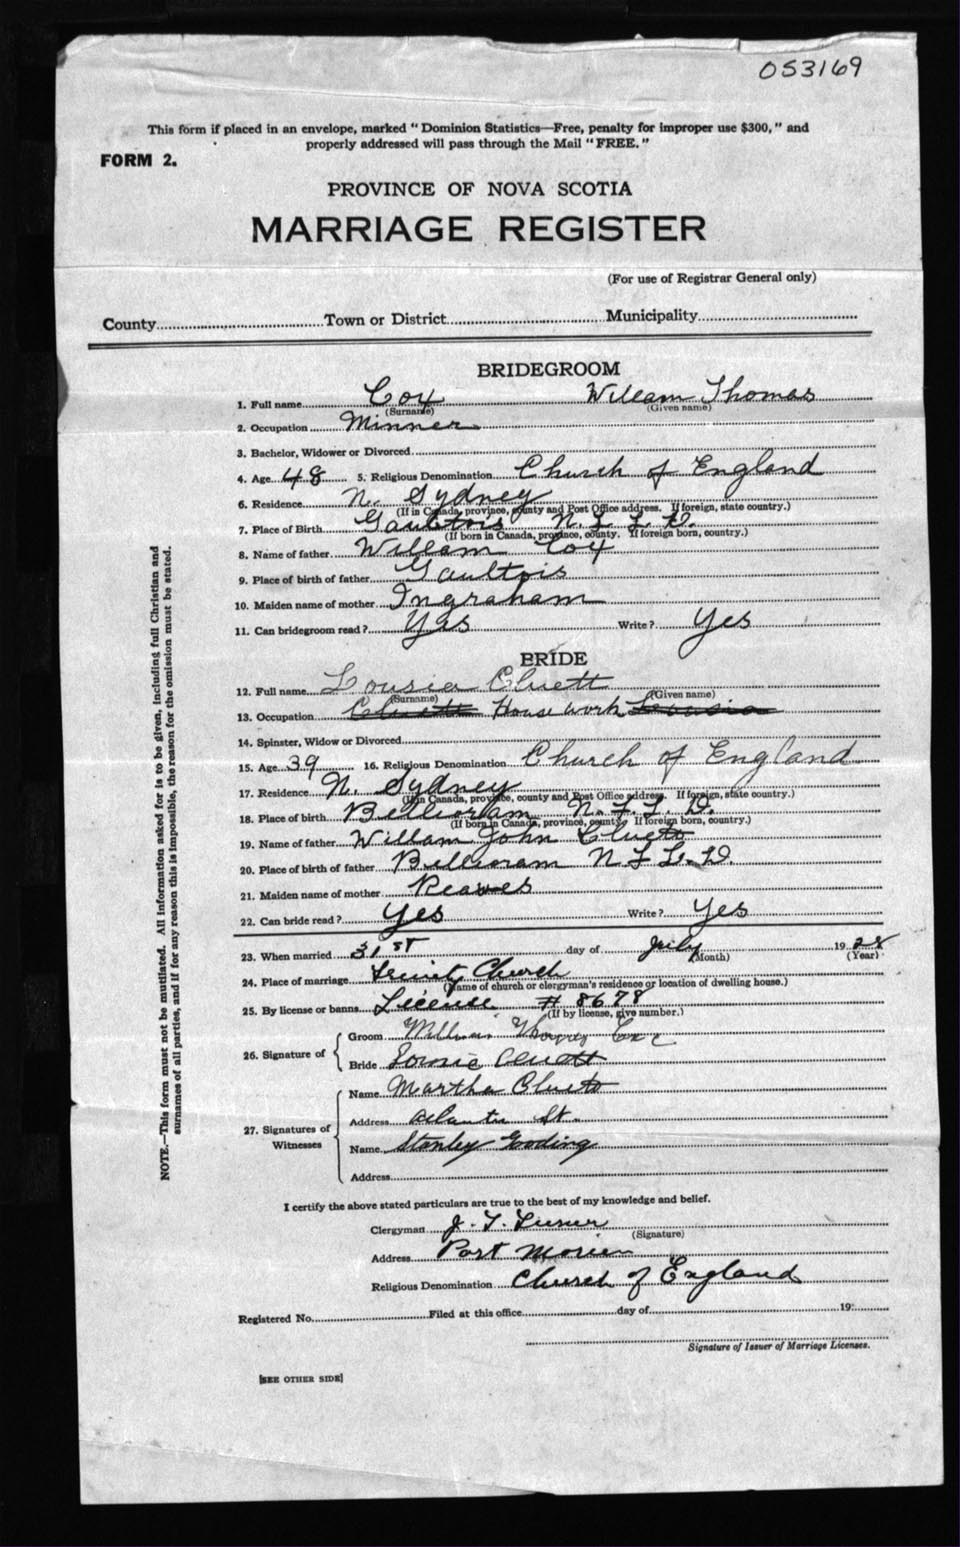 053169
This form if placed in an envelope, marked "Dominion Statistics—Free, penalty for improper use $300," and
properly addressed will pass through the Mail "FREE."
FORM 2.
PROVINCE OF NOVA SCOTIA
MARRIAGE REGISTER
(For use of Registrar General only)
County Town or District Municipality
BRIDEGROOM
1. Full name Cox Willeam Thomas
(Surname) (Given name)
2. Occupation Minner
3. Bachelor, Widower or Divorced
4. Age 48 5. Religious Denomination Church of England
6. Residence N. Sydney
(If in Canada, province, county and Post Office address. If foreign, state country.)
7. Place of Birth Gaultois N.F.L.D.
(If born in Canada, province, county. If foreign born, country.)
8. Name of father Willeam Cox
9. Place of birth of father Gaultois
10. Maiden name of mother Ingraham
11. Can bridegroom read? Yas Write? Yes
BRIDE
12. Full name Lousia Cluett
(Surname) (Given name)
13. Occupation Cluett House work Lousia
14. Spinster, Widow or Divorced
15. Age 39 16. Religious Denomination Church of England
17. Residence N. Sydney
(If in Canada, province, county and Post Office address. If foreign, state country.)
18. Place of birth Belleoram N.F.L.D.
(If born in Canada, province, county. If foreign born, country.)
19. Name of father Willam John Cluett
20. Place of birth of father Belleoram N F L.D.
21. Maiden name of mother Reaves
22. Can bride read? Yes Write? Yes
23. When married 31st day of July 1928
(Month) (Year)
24. Place of marriage Church
(Name of church or clergyman's residence or location of dwelling house.)
25. By license or banns License # 8678
(If by license, give number.)
26. Signature of
Groom
Bride Cluett
27. Signatures of Witnesses
Name Martha Cluett
Address Atlantic St.
Name Stanley Gooding
Address
I certify the above stated particulars are true to the best of my knowledge and belief.
Clergyman J. T.
(Signature)
Address Port Morien
Religious Denomination Church of England
Registered No. Filed at this office day of 19
Signature of Issuer of Marriage Licenses.
[SEE OTHER SIDE]
NOTE.—This form must not be mutilated. All information asked for is to be given, including full Christian and
surnames of all parties, and if for any reason this is impossible, the reason for the omission must be stated.